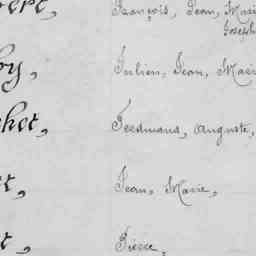 François, Jean, Marie
Joseph
Julien, Jean, Marie
Ferdinand, Auguste,
Jean, Marie,
Pierre,